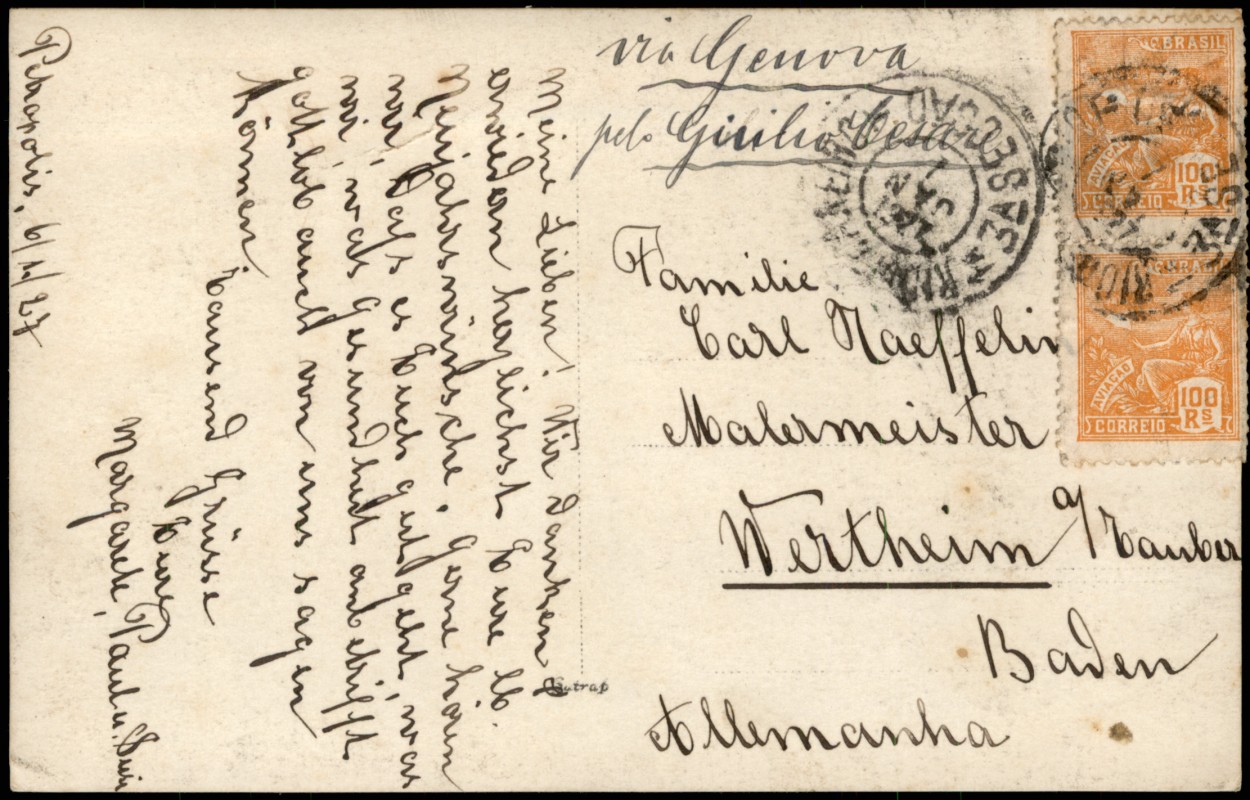 Petropolis, 6/1/27
Meine Lieben! Wir danken
erwiedern herzlichst Eure lb.
Neujahrswünsche. Gerne hören
wir, daſs es Euch gut geht, was
wir, was Gesundheit anbetrifft
gottlob auch von uns sagen
können.
Tausend Grüsse
Eure
Margarete, Paul u.
via Genova
pelo Giulio Cesare
Familie
Carl Haeffelin
Malermeister
Wertheim a/Tauber
Baden
Allemanha
BRASIL
AVIAÇÃO
100
RS
CORREIO
BRASIL
AVIAÇÃO
100
RS
CORREIO